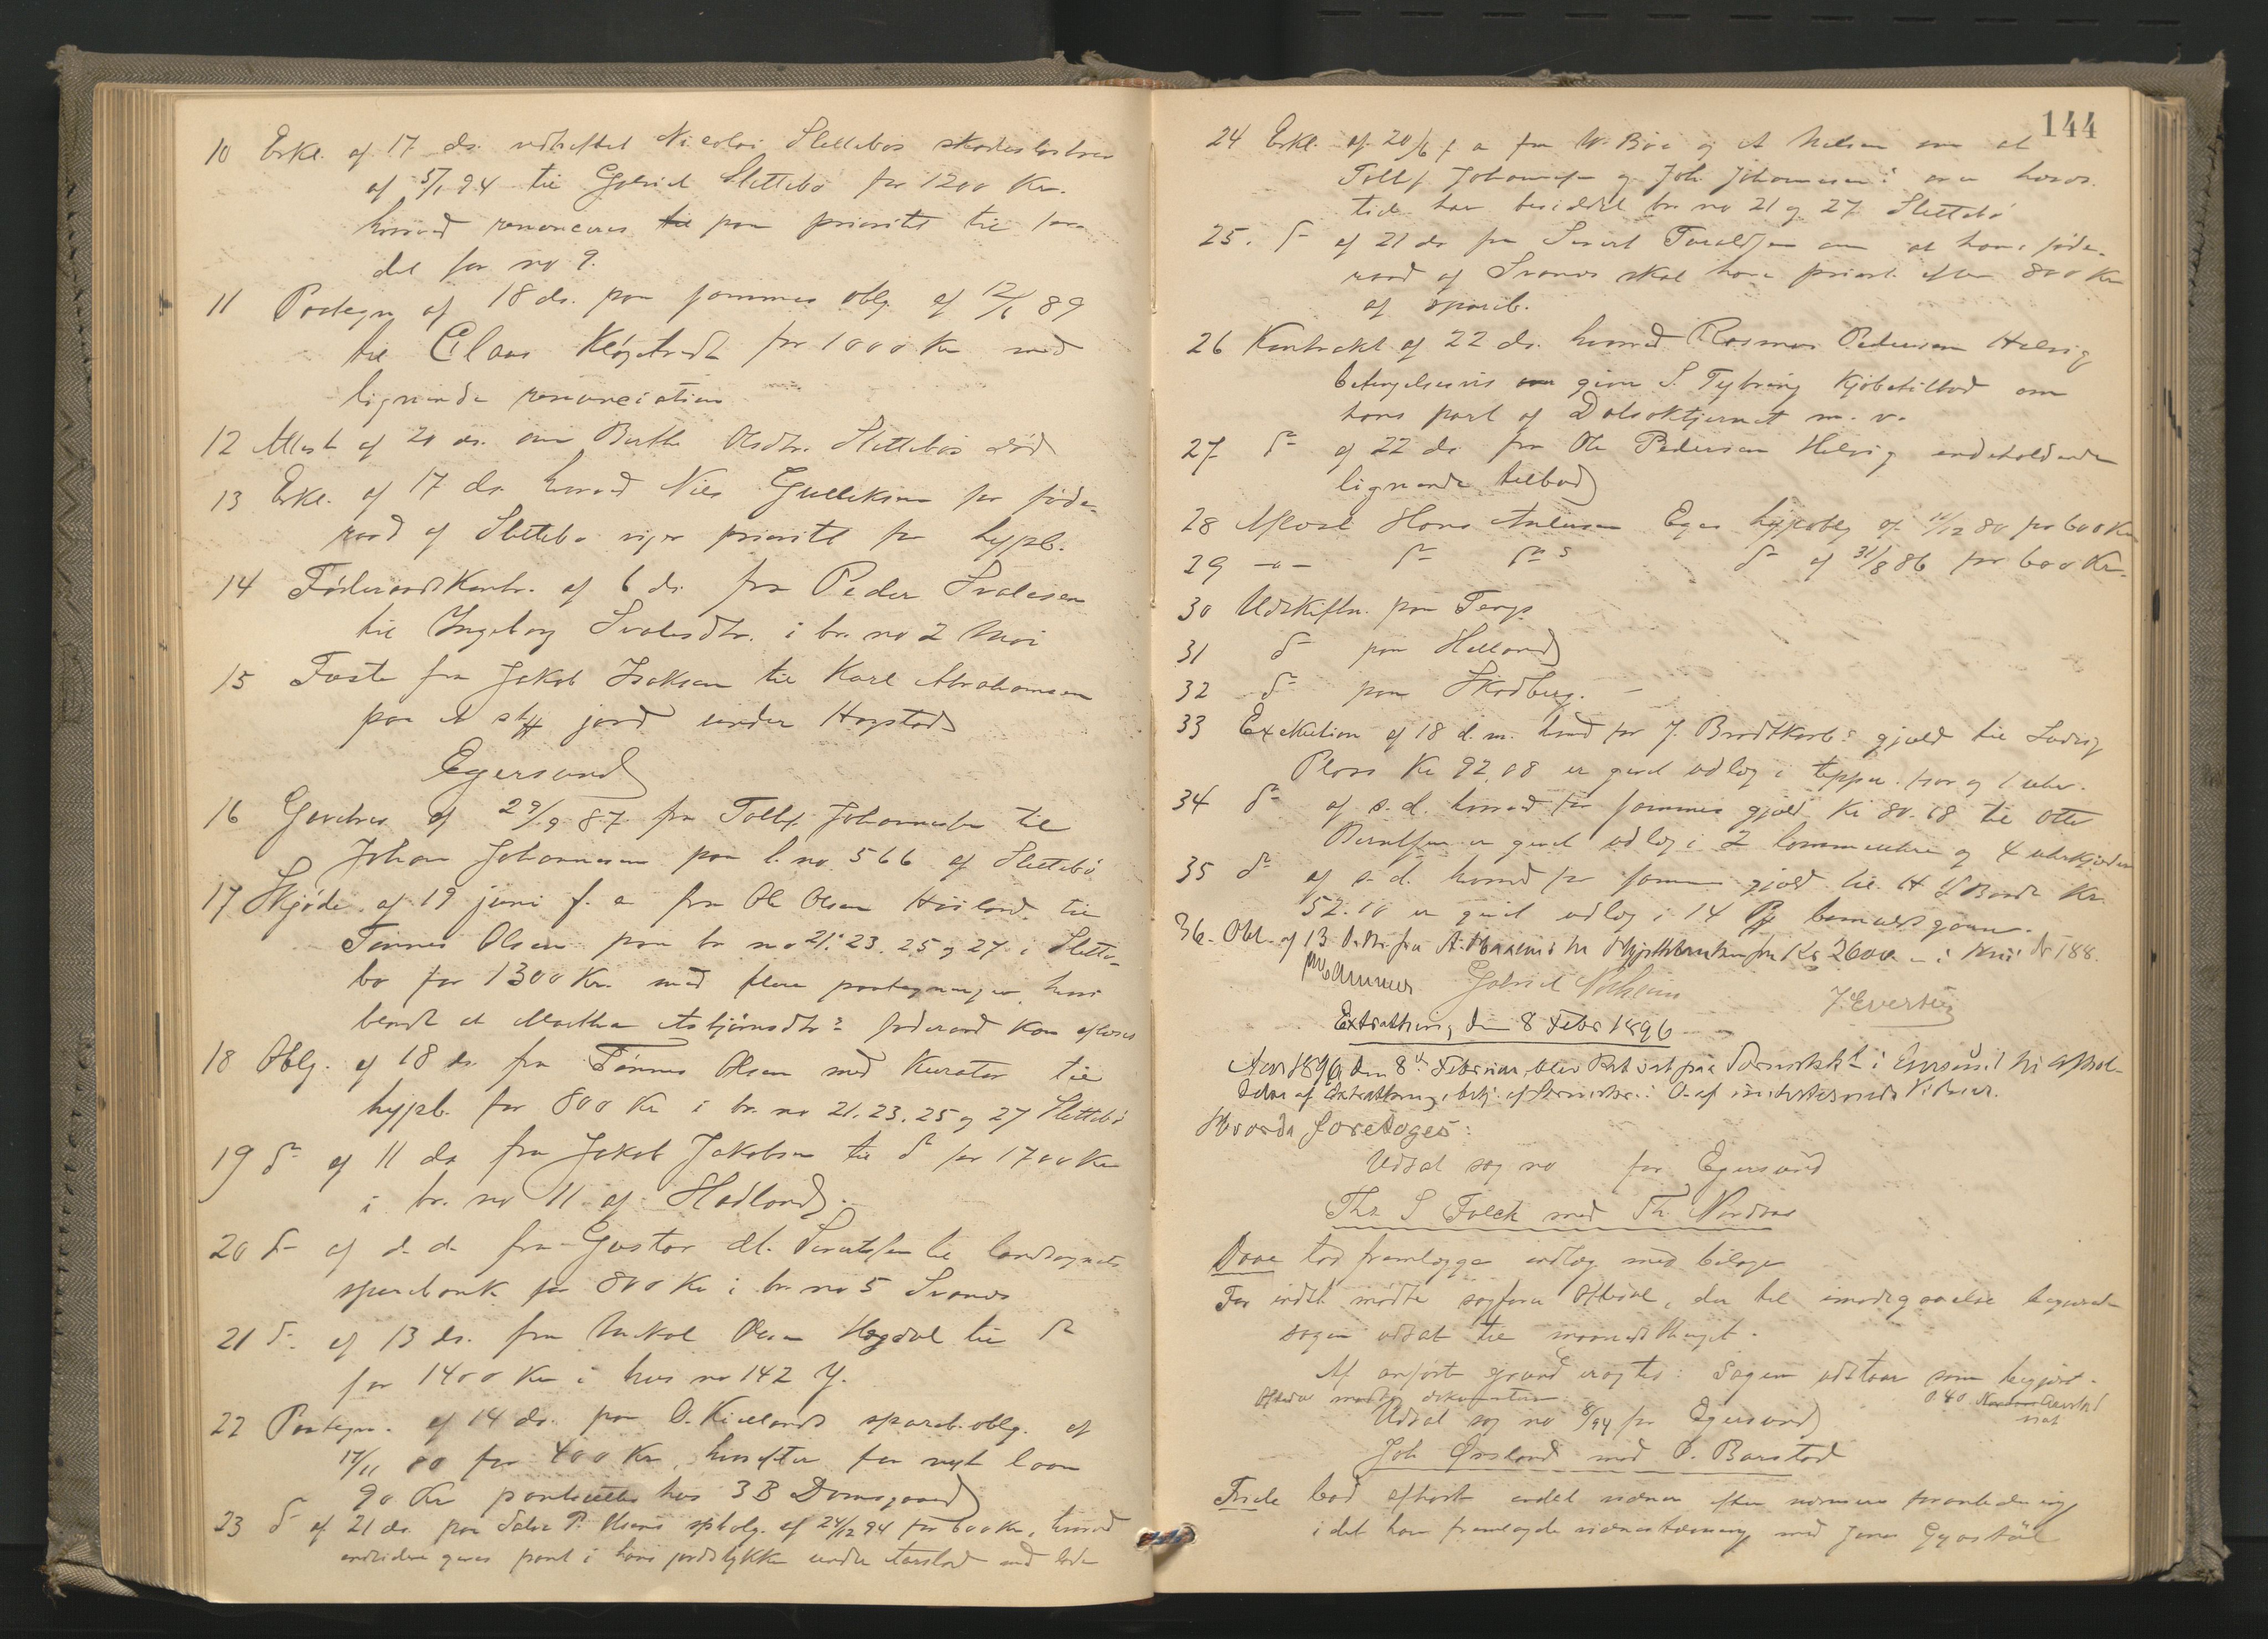 10 Erkl. af 17 ds. vedheftet Nicolai Slettebøs skadesløsbrev
af 5/1 94 til Gabriel Slettebø for 1200 Kr.
hvorved renonceres paa prioritet til
det for no 9.
11 Paategn af 18 ds. paa sammes oblg. af 12/6 89
til Claas Kløgetvedt for 1000 Kr med
lignende renunciation
12 Attest af 20 ds. om Berthe Olsdtr. Slettebøs død
13 Erkl. af 17 ds. hvorved Nils Gulliksen for føde-
raad af Slettebø viger prioritet for hypb.
14 Føderaadskontr. af 6 ds. fra Peder Svalesen
til Ingeborg Svalesdtr. i br. no 2 Moi
15 Fæste fra Jakob Isaksen til Karl Abrahamsen
paa et st jord under Havstad
Egersund
16 Gavebrev af 29/9 87 fra Tollf. Johannesen til
Johan Johannesen paa l. no. 566 af Slettebø
17 Skjøde af 19 juni f. a fra Ole Olsen Høiland til
Tønnes Olsen paa br no 21. 23. 25 og 27 i Slette-
bø for 1300 Kr. med flere paategninger, hvori
blandt at Martha Asbjørnsdtr.s føderaad kan afløses
18 Oblg. af 18 ds. fra Tønnes Olsen med Kurator til
hypb. for 800 Kr i br. no 21. 23. 25 og 27 Slettebø
19 do af 11 ds fra Jakob Jakobsen til do for 1700 Kr
i br. no 11 af Hadland.
20 do af d. d. fra Gustav Al. Sivertsen til landsognets
sparebank for 800 Kr i br. no 5 Svanes
21 do af 13 ds. fra Mikal Olsen Hegdal til do
for 1400 Kr i hus no 142 Y.
22 Paategn. af 14 ds. paa O. Kiellands spareb.oblg. af
17/11 80 for 400 Kr, hvorefter for nyt laan
90 Kr pantsættes hus 3 B Damsgaard
23 do af 21 ds. paa Salve P. Olsens spb.oblg. af 24/12 94 for 600 Kr, hvorved
endvidere gives pant i hans jordstykke under Aarstad med
144
24 Erkl. af 20/6 f a fra W. Bøe og A Nilsen om at
Tollf. Johannesen og Joh. Johannesen i over hævds-
tid har besiddet br no 21 og 27 Slettebø
25. do af 21 ds fra Sivert Toraldsen om at hans føde-
raad af Svanes skal have priort. efter 800 Kr
af spareb.
26 Kontrakt af 22 ds. hvorved Rasmus Pedersen Helvig
betingelsesvis giver S. Tybring Kjøbetilbud om
hans part af Dalsoktjernet m. v.
27 do af 22 ds fra Ole Pedersen Helvig indeholdende
lignende tilbud
28 Aflæst Hans Antensen Eges hyp.oblg af 11/12 80 for 600 Kr
29 -o- do do s do af 31/8 86 for 600 Kr.
30 Udskiftn. paa Tengs
31 do paa Helland
32 do paa Skadberg. -
33 Exekution af 18 d. m. hvorved for J. Brodtkorbs gjæld til Ludvig
Ploss Kr 92,08 er gjort udlæg i tepper. og 1 uhr.
34 do af s. d. hvorved for sammes gjæld Kr 80.68 til Otto
Berntsen er gjort udlæg i 2 lommeuhre og 4 uhrkjæder
35 do af s. d. hvorved for sammes gjæld til Kr
52.10 er gjort udlæg i 14 bomuldsgarn.
36. Obl. af 13 ds. fra til Hypothekbanken for Kr 2600 i Moi
Gabriel Nodheim J. Evertsen
Extrathing den 8 Febr 1896
Aar 1896 den 8de Februar, blev Ret sat paa i Egersund til afhol-
delse af Extrathing, af undertegnede Vidner.
Hvorda foretages:
Udsat sag no for Egersund
Ths. S Falck mod Th. Nordaas
Daae lod fremlægge indlæg med bilage
For indst. mødte sagfører Oftedal, der til imødegaaelse begjærede
sagen udsat til maanedsthinget.
Af anført grund eragted: Sagen udstaar som begjært.
Oftedal modtog dokumenterne.
Udsat sag no 8/94 for Egersund
Joh Ørsland mod P. Barstad
Feide bad afhørt endel vidner efter nærmere foranledning
i det han fremlagde vidnestævning med Jonas Gyastøl